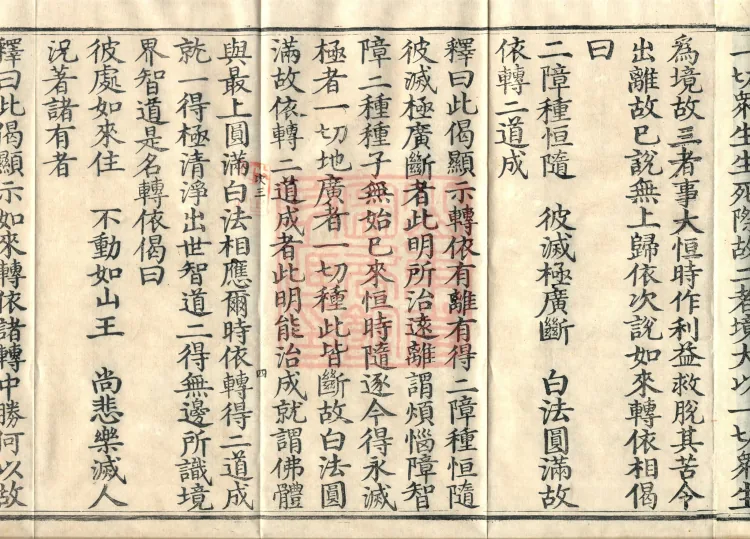 一切眾生生死際故二者境大以一切眾生
爲境故三者事大恒時作利益救脫其苦令
出離故已說無上歸依次說如來轉依相偈
曰
二障種恒隨　彼滅極廣斷　白法圓滿故
依轉二道成
釋曰此偈顯示轉依有離有得二障種恒隨
彼滅極廣斷者此明所治遠離謂煩惱障智
障二種種子無始已來恒時隨逐今得永滅
極者一切地廣者一切種此皆斷故白法圓
滿故依轉二道成者此明能治成就謂佛體
與最上圓滿白法相應爾時依轉得二道成
就一得極清淨出世智道二得無邊所識境
界智道是名轉依偈曰
彼處如來住　不動如山王　尚悲樂滅人
況著諸有者
釋曰此偈顯示如來轉依諸轉中勝何以故
四